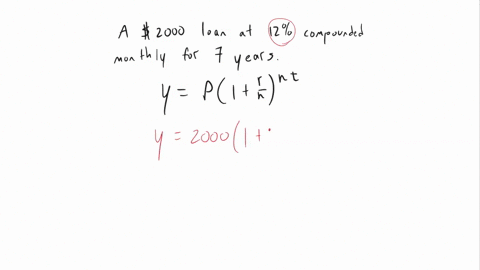 A $2000 loan at 12% compounded
monthly for 7 years.
y = P(1 + r/n)^nt
y = 2000(1 +